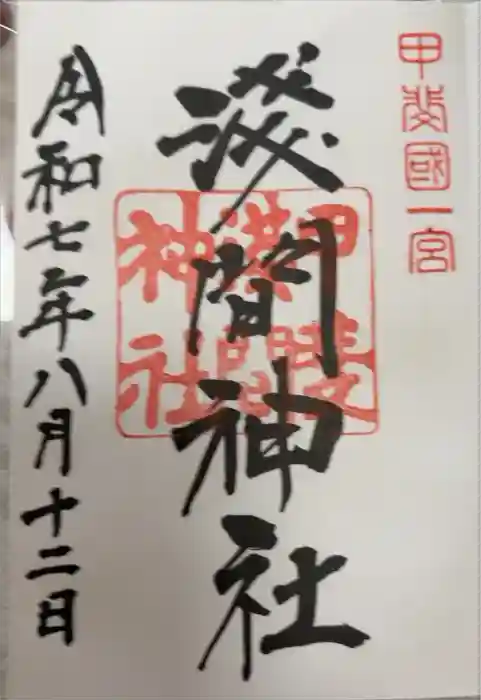 甲斐國一宮
淺間神社
甲斐
淺間
神社
令和七年八月十二日